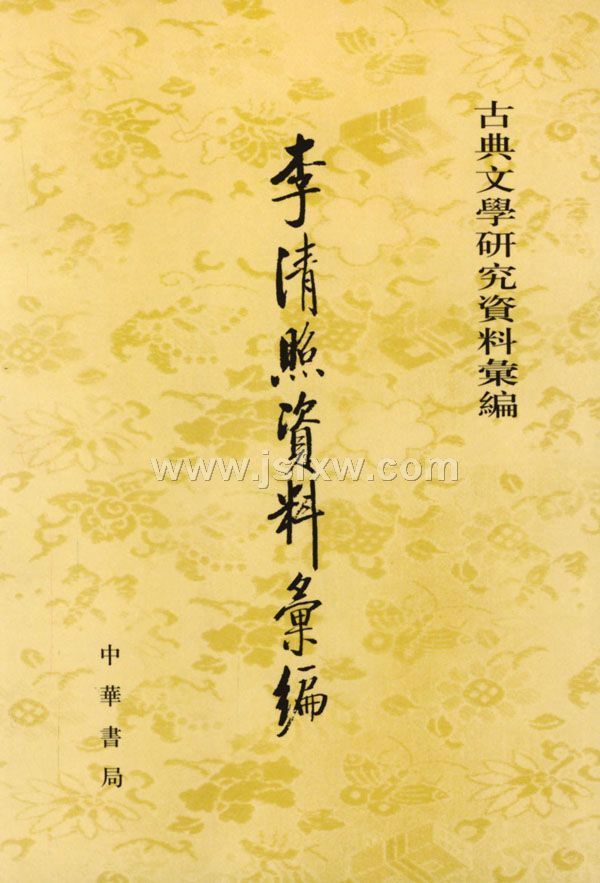 古典文學硏究資料彙編
李清照資料彙編
中華書局
www.jslxw.com